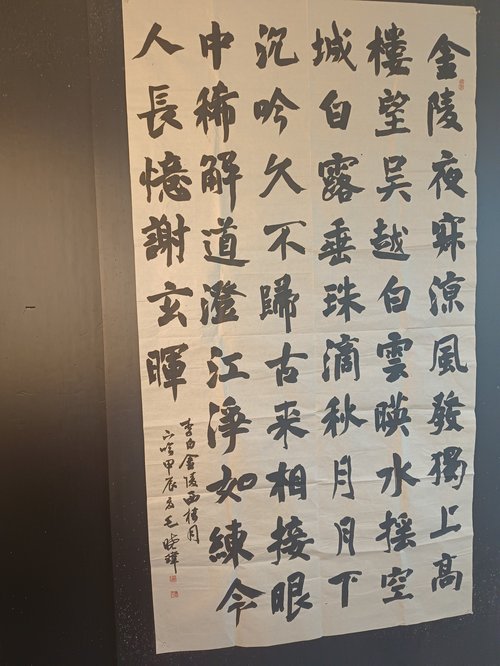 金陵夜寐涼風發獨上高
樓望吳越白雲暎水摇空
城白露垂珠滴秋月月下
沉吟久不歸古来相接眼
中稀解道澄江淨如練今
人長憶謝玄暉
李白金陵西楼月
下吟甲辰